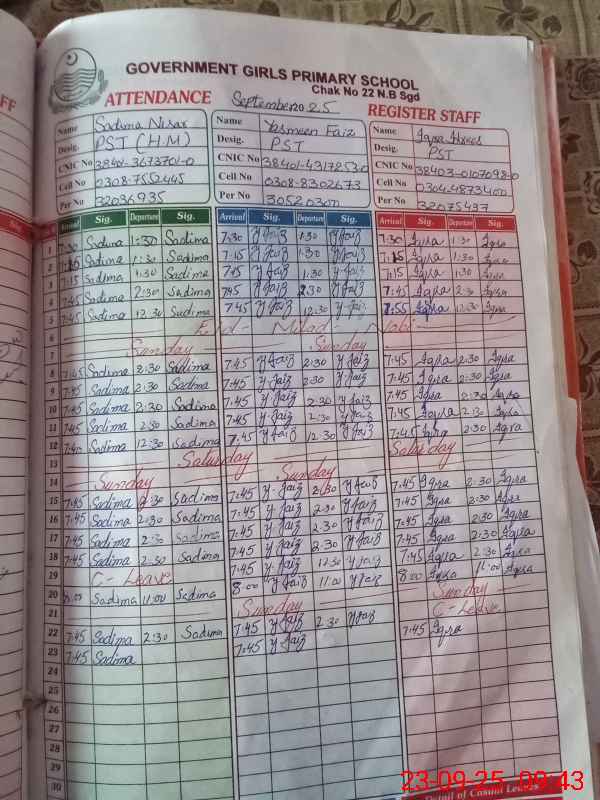 GOVERNMENT GIRLS PRIMARY SCHOOL
Chak No 22 N.B Sgd
ATTENDANCE September 2025 REGISTER STAFF
Name Sadima Nisar Name Yasmeen Faiz Name Iqra
Desig. PST (H.M) Desig. PST Desig. PST
CNIC No 38401-3673701-0 CNIC No 38401-4317853-0 CNIC No 38403-0107098-0
Cell No 0308-7552445 Cell No 0308-8302673 Cell No 0304-4873400
Per No 32036935 Per No Per No 32075437
Arrival Sig. Departure Sig. Arrival Sig. Departure Sig. Arrival Sig. Departure Sig.
1 7:30 Sadima 1:30 Sadima 7:30 Y.Faiz 1:30 Y.Faiz 7:30 Iqra 1:30 Iqra
2 7:15 Sadima 1:30 Sadima 7:15 Y.Faiz 1:30 Y.Faiz 7:15 Iqra 1:30 Iqra
3 7:15 Sadima 1:30 Sadima Y.Faiz 1:30 Y.Faiz 7:15 Iqra 1:30 Iqra
4 7:45 Sadima 2:30 Sadima 7:45 Y.Faiz 2:30 Y.Faiz 7:45 Iqra 2:30 Iqra
5 7:45 Sadima 12:30 Sadima 7:45 Y.Faiz 12:30 Y.Faiz 7:55 Iqra 12:30 Iqra
6 Eid - Milad - Nabi
7 Sunday Sunday
8 7:45 Sadima 2:30 Sadima 7:45 Y.Faiz 2:30 Y.Faiz 7:45 Iqra 2:30 Iqra
9 7:45 Sadima 2:30 Sadima 7:45 Y.Faiz 2:30 Y.Faiz 7:45 Iqra 2:30 Iqra
10 7:45 Sadima 2:30 Sadima 7:45 Y.Faiz 2:30 Y.Faiz 7:45 Iqra 2:30 Iqra
11 7:45 Sadima 2:30 Sadima 7:45 Y.Faiz 2:30 Y.Faiz 7:45 Iqra 2:30 Iqra
12 7:45 Sadima 12:30 Sadima 7:45 Y.Faiz 12:30 Y.Faiz 7:45 Iqra 2:30 Iqra
13 Saturday Saturday
14 Sunday Sunday
15 7:45 Sadima 2:30 Sadima 7:45 Y.Faiz 2:30 Y.Faiz 7:45 Iqra 2:30 Iqra
16 7:45 Sadima 2:30 Sadima 7:45 Y.Faiz 2:30 Y.Faiz 7:45 Iqra 2:30 Iqra
17 7:45 Sadima 2:30 Sadima 7:45 Y.Faiz 2:30 Y.Faiz 7:45 Iqra 2:30 Iqra
18 7:45 Sadima 2:30 Sadima 7:45 Y.Faiz 2:30 Y.Faiz 7:45 Iqra 2:30 Iqra
19 C- Leave 7:45 Y.Faiz Y.Faiz 7:45 Iqra 2:30 Iqra
20 8:00 Sadima 11:00 Sadima 8:00 Y.Faiz 11:00 Y.Faiz 8:00 Iqra 11:00 Iqra
21 Sunday Sunday
22 7:45 Sadima 2:30 Sadima 7:45 Y.Faiz 2:30 Y.Faiz C- Leave
23 7:45 Sadima 7:45 Y.Faiz 7:45 Iqra
24
25
26
27
28
29
30
Detail of Casual Leaves
23-09-25 09:43